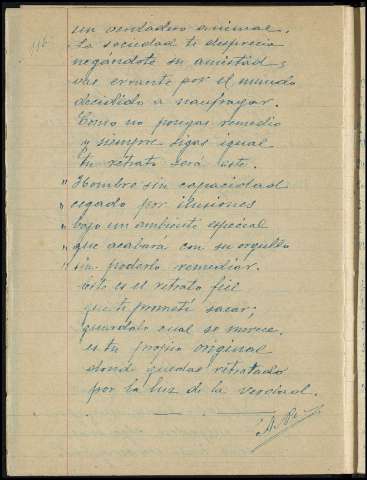 116
un verdadero animal.
La sociedad te desprecia
negandote su amistád;
vas errante por el mundo
decidido a naufragar.
Como no pongas remedio
y siempre sigas igual
tu retrato será este.
" Hombre sin capacidad
" cegado por ilusiones
" bajo un ambiente especial
" que acabará con su orgullo
" sin poderlo remediar.
este es el retrato fiel
que ti prometí sacar;
guardalo cual se merece.
es tu propio original
donde quedas retratado
por la luz de la verdad.